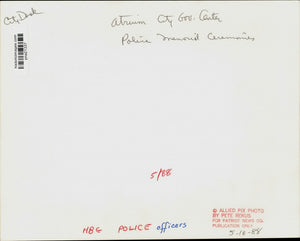 City Desk
Atrium City Gov. Center
Police Memorial Ceremonies
5/88
HBG POLICE officers
© ALLIED PIX PHOTO
BY PETE KEKUS
FOR PATRIOT NEWS CO.
PUBLICATION ONLY
5-16-88